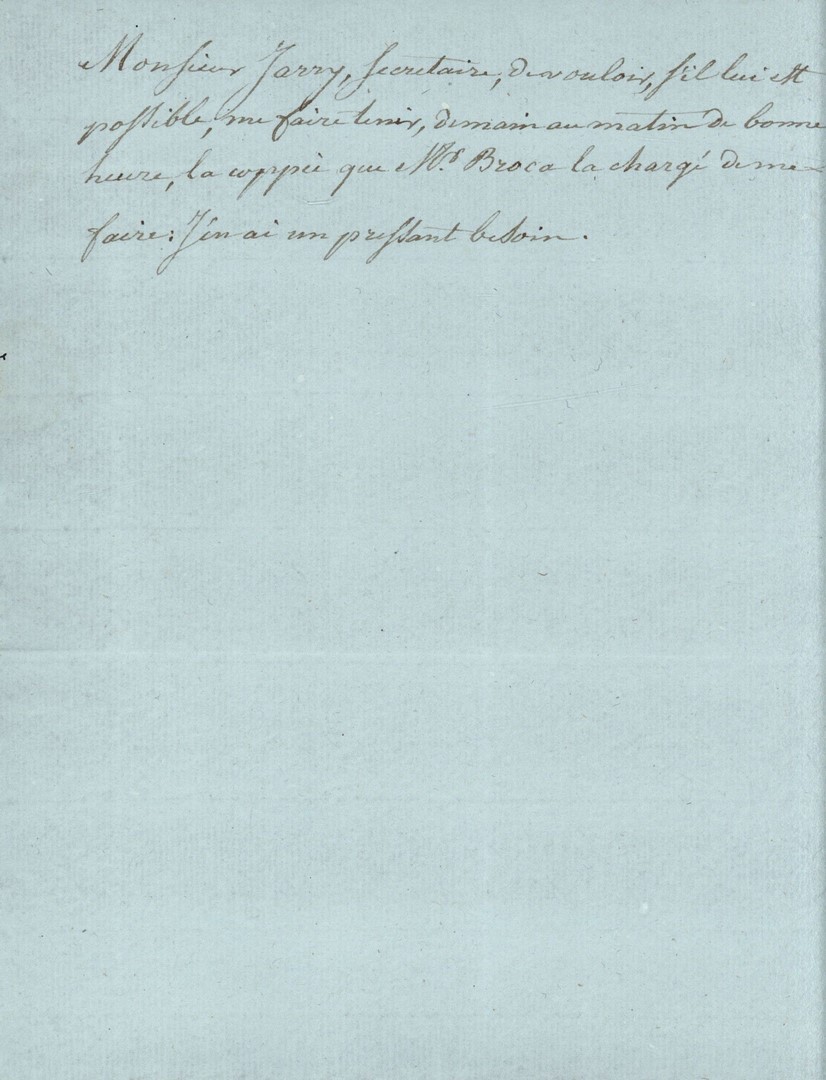 Monsieur Jarry, secretaire, de vouloir, s'il lui est
possible, me faire tenir, demain au matin de bonne
heure, la coppie que Mr. Broca la chargé de me
faire: J'en ai un pressant besoin.